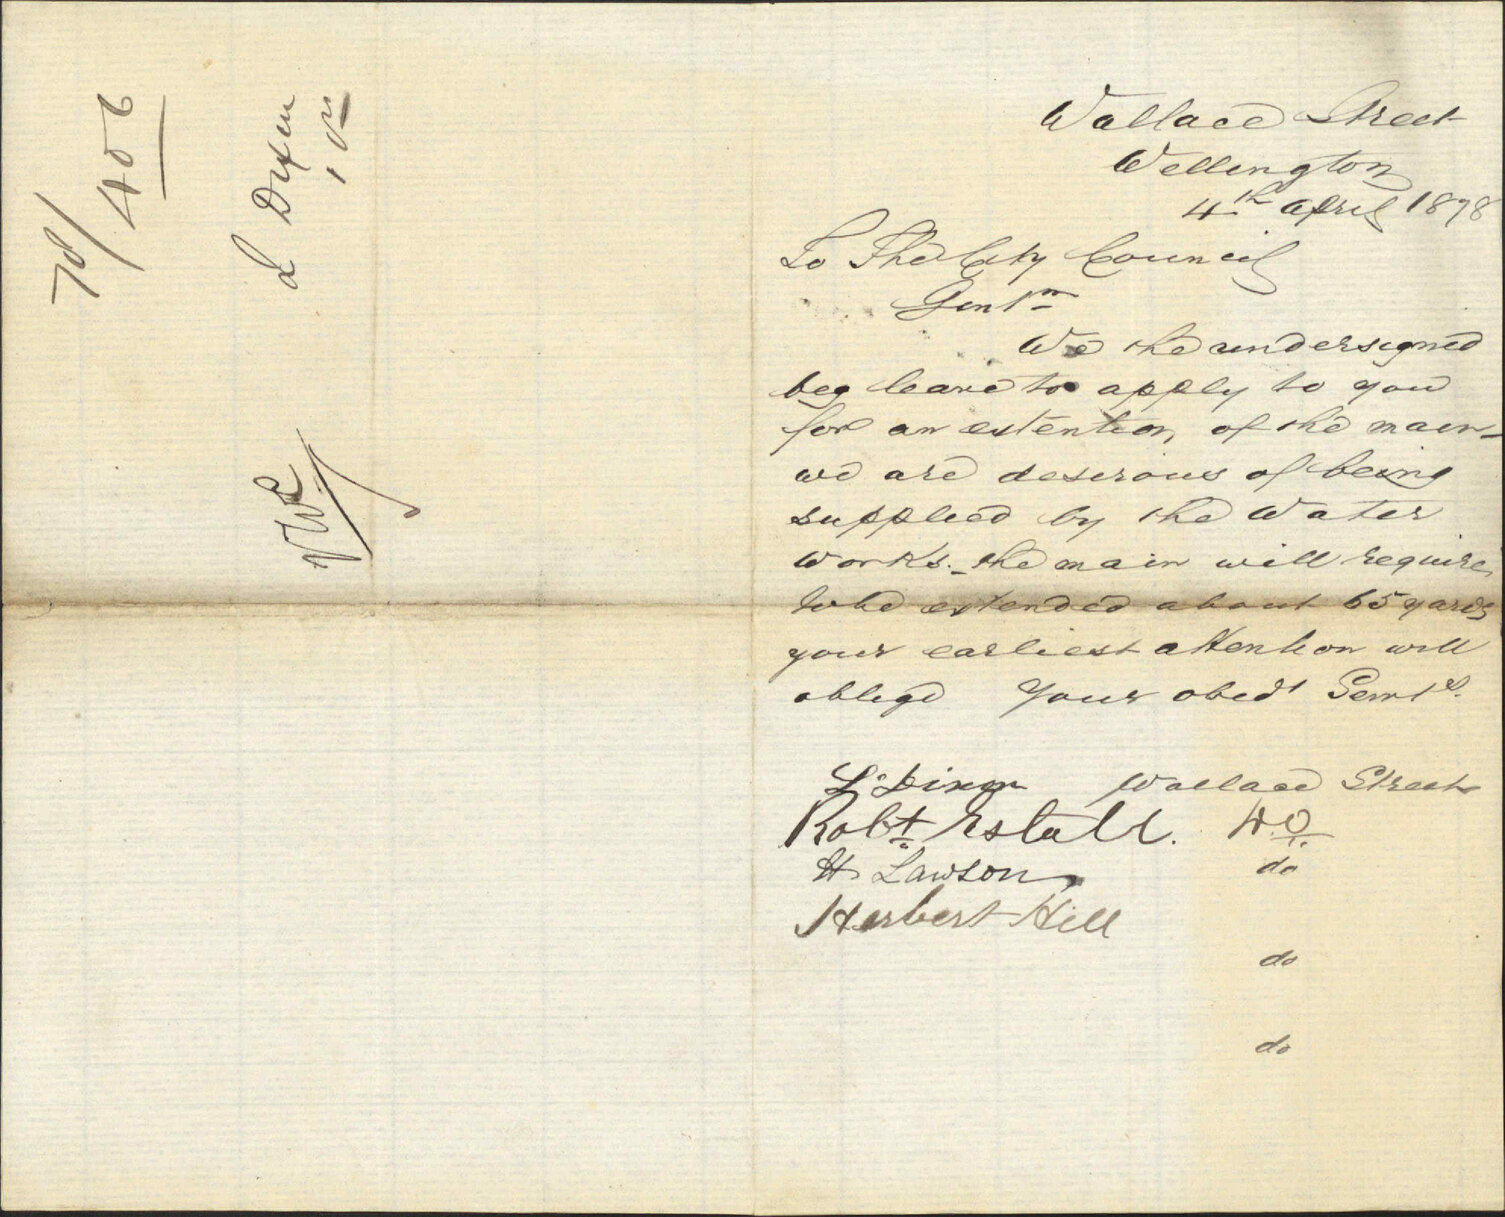 78/406
L Dixon
Wallace Street
Wellington
4th April 1878
To The City Council
Gentm
We the undersigned
beg leave to apply to you
for an extention of the main
we are deserous of being
supplied by the Water
works. - the main will require
to be extended about 65 yards
your earliest attention will
oblige Your obedt Servts.
L. Dixon Wallace Street
Robt Estall. DO
H Lawson do
Herbert Hill
do
do